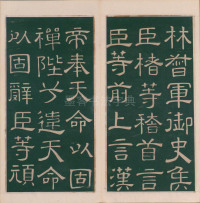 林督軍御史
臣楮等稽首言
臣等前上言漢
帝奉天命以固
禪陛下違天命
以固辭臣等頑